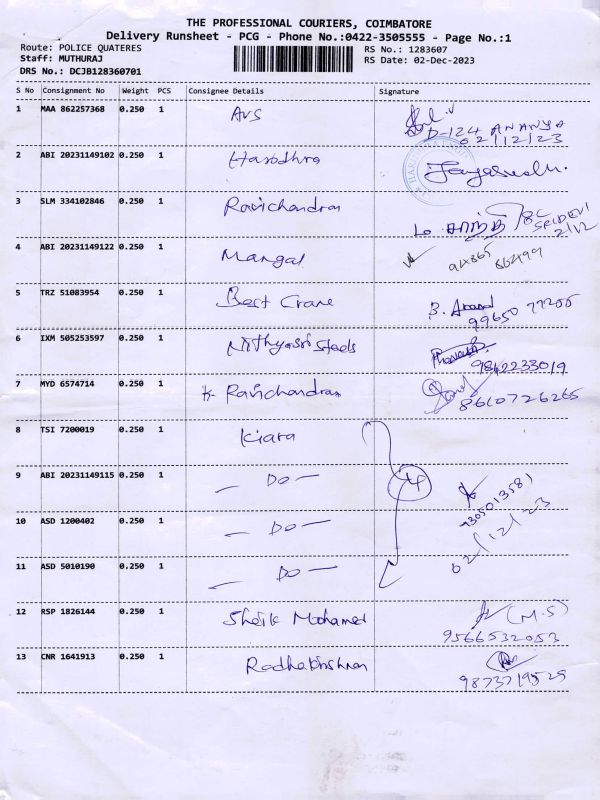 THE PROFESSIONAL COURIERS, COIMBATORE
Delivery Runsheet - PCG - Phone No.:0422-3505555 - Page No.:1
Route: POLICE QUATERES RS No.: 1283607
Staff: MUTHURAJ RS Date: 02-Dec-2023
DRS No.: DCJB128360701
S No Consignment No Weight PCS Consignee Details Signature
1 MAA 862257368 0.250 1 AVS
D-124 ANANYA
02/12/23
2 ABI 20231149102 0.250 1
3 SLM 334102846 0.250 1 Ravichandran
சாந்தி 8C
SRIDEVI
2/12
4 ABI 20231149122 0.250 1 Mangal 94865 862499
5 TRZ 51083954 0.250 1 Best Crane B. Anand
99650 77255
6 IXM 505253597 0.250 1 Nithyasri Steels
9842233019
7 MYD 6574714 0.250 1 K Ravichandran
8610726265
8 TSI 7200019 0.250 1 Kiara
9 ABI 20231149115 0.250 1 — DO — 4
7305013581
10 ASD 1200402 0.250 1 — DO —
02/12/23
11 ASD 5010190 0.250 1 — DO —
12 RSP 1826144 0.250 1 Sheik Mohamed (M.S)
9566532053
13 CNR 1641913 0.250 1 Radhakrishnan
9873719529